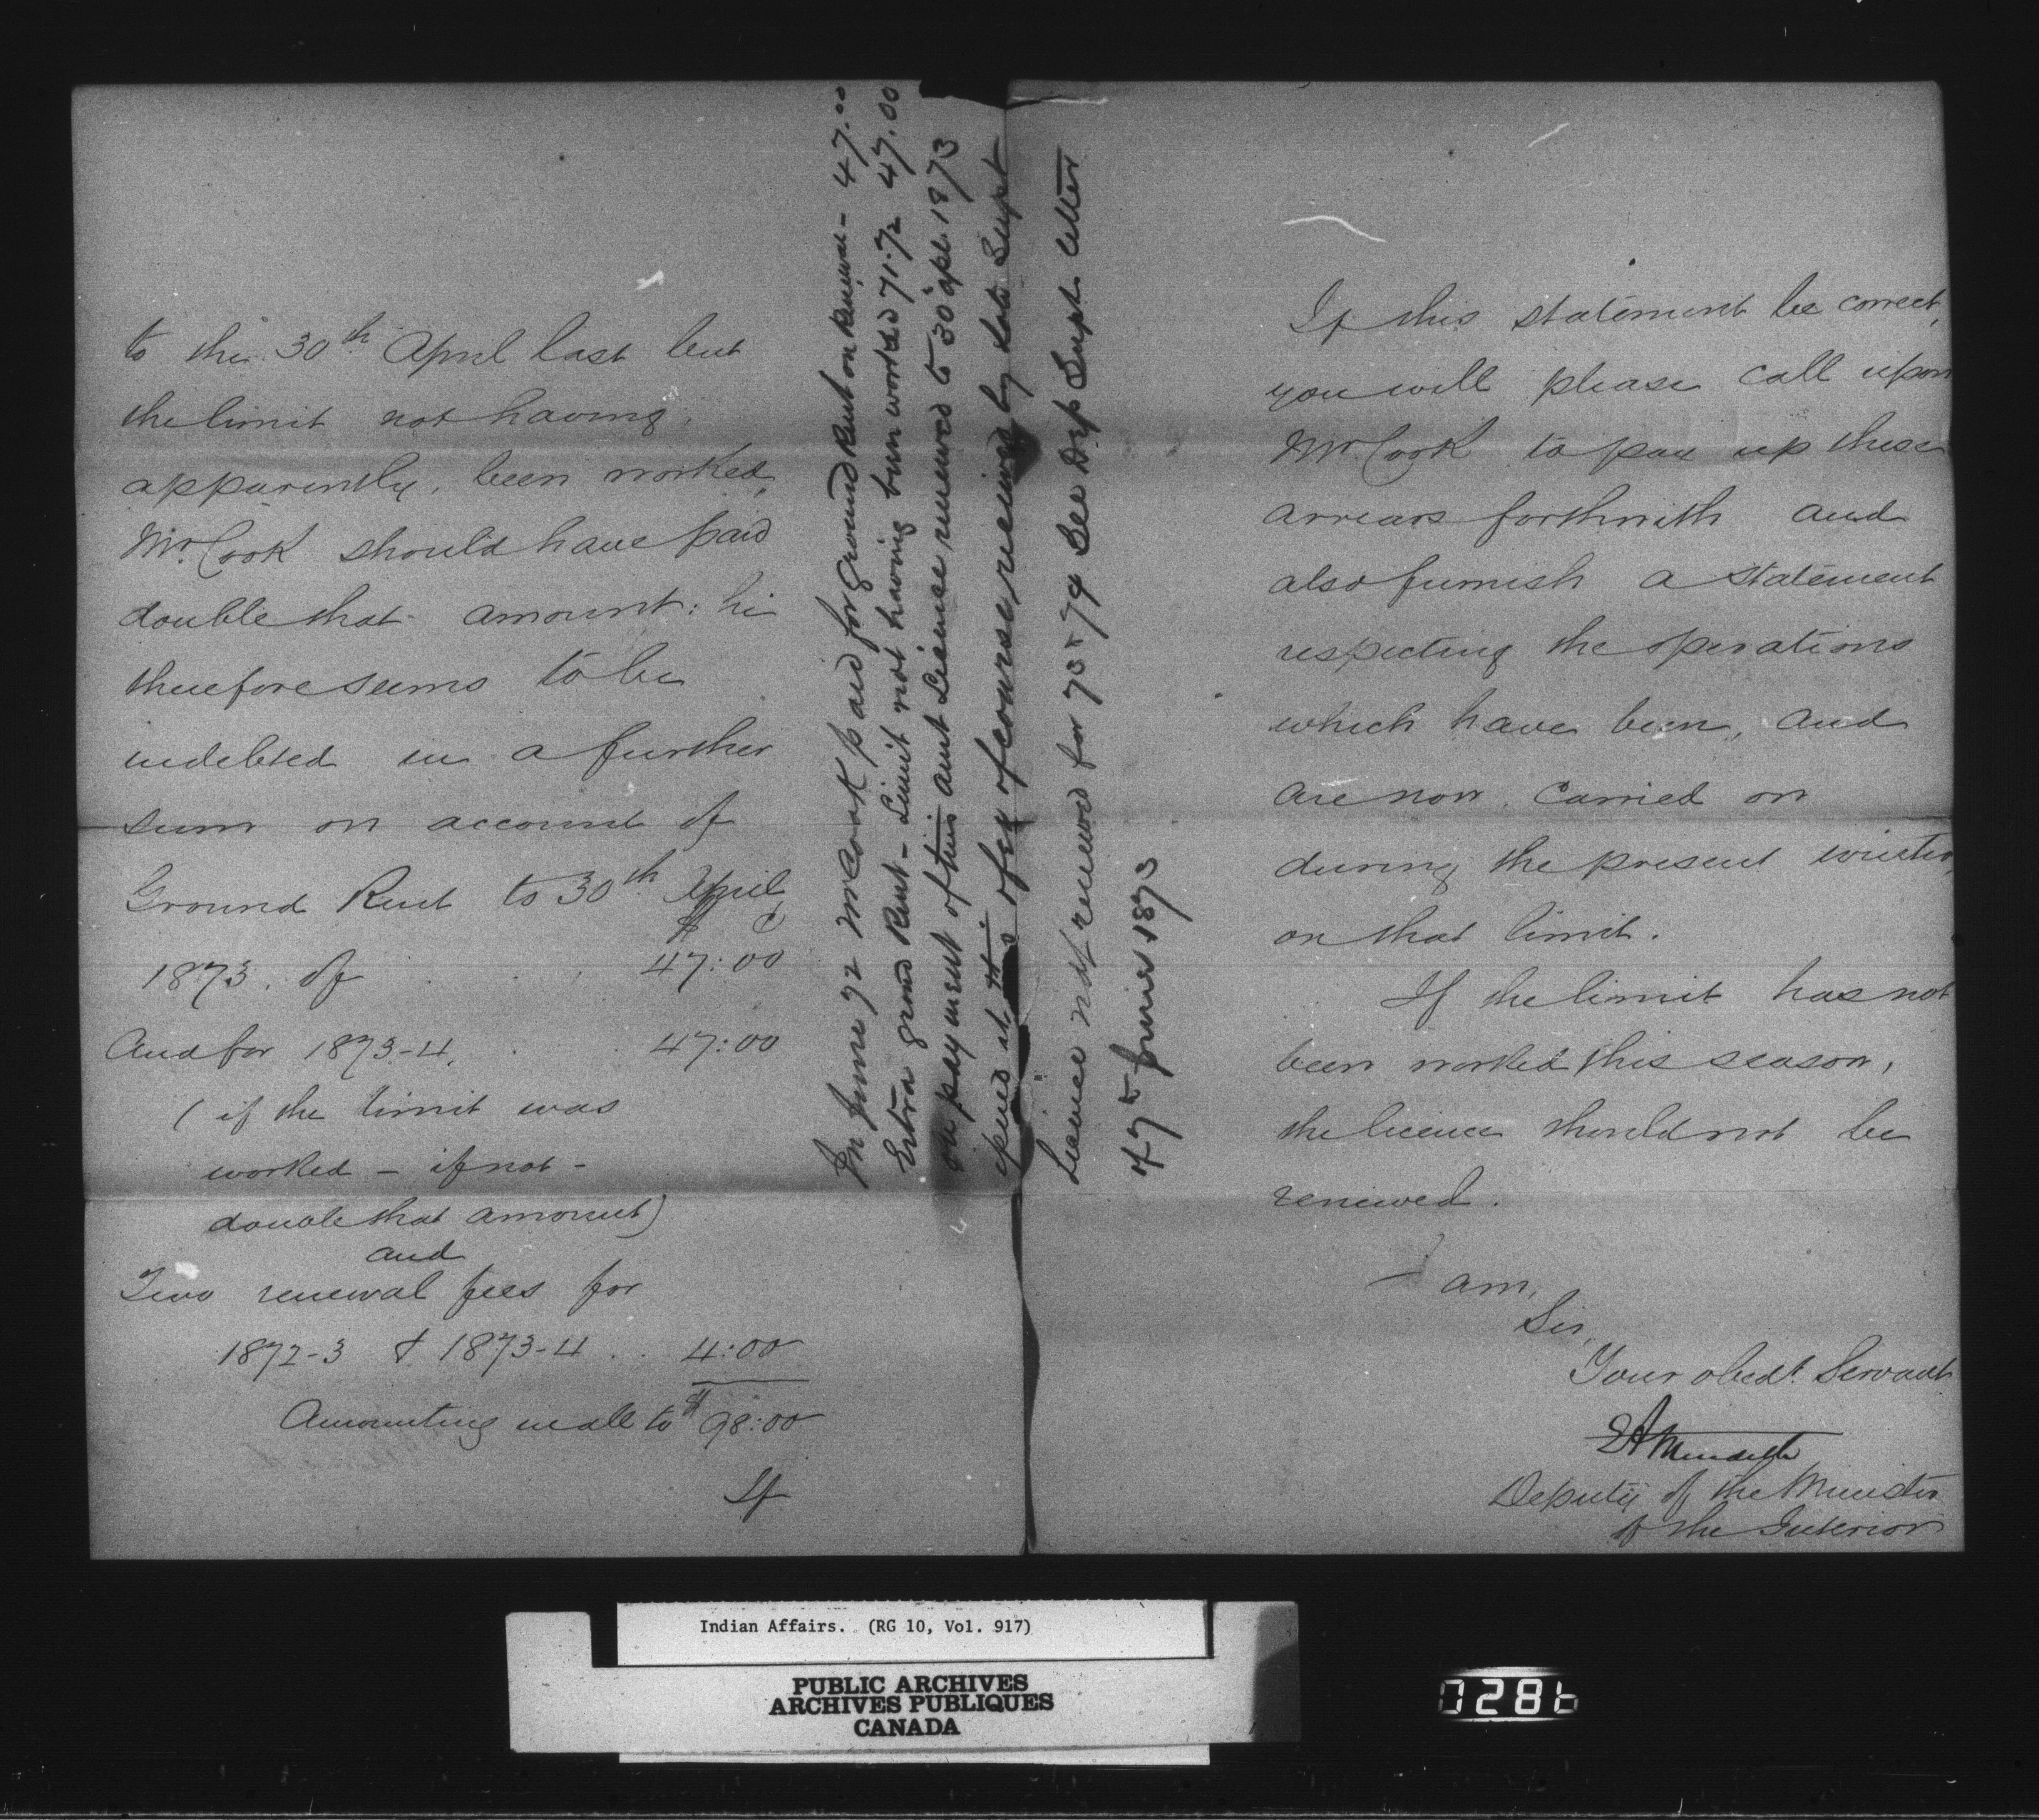 to the 30th April last but
the limit not having,
apparently, been worked,
Mr. Cook should have paid
double that amount: he
therefore seems to be
indebted in a further
sum on account of
Ground Rent to 30th April
$ c
1873. of . . . 47:00
And for 1873-4. . . 47:00
(if the limit was
worked - if not -
double that amount)
and
Two renewal fees for
1872-3 & 1873-4 . . 4:00
Amounting in all to $98:00
If
In June 72 Mr Cook paid for ground Rent on renewal - 47.00
Extra ground Rent - Limit not having been worked 71-72 47.00
on payment of this amt Licence renewed to 30 apl. 1873
of course received by late Supt
Licence not renewed for 73-74 See Dep Supt. letter
of 7th June 1873
If this statement be correct,
you will please call upon
Mr. Cook to pay up these
arrears forthwith and
also furnish a statement
respecting the operations
which have been, and
are now, carried on
during the present winter,
on that limit.
If the limit has not
been worked this season,
the licence should not be
renewed.
I am,
Sir,
Your obedt. Servant
E A Meredith
Deputy of the Minister
of the Interior
Indian Affairs. (RG 10, Vol. 917)
PUBLIC ARCHIVES
ARCHIVES PUBLIQUES
CANADA
0286